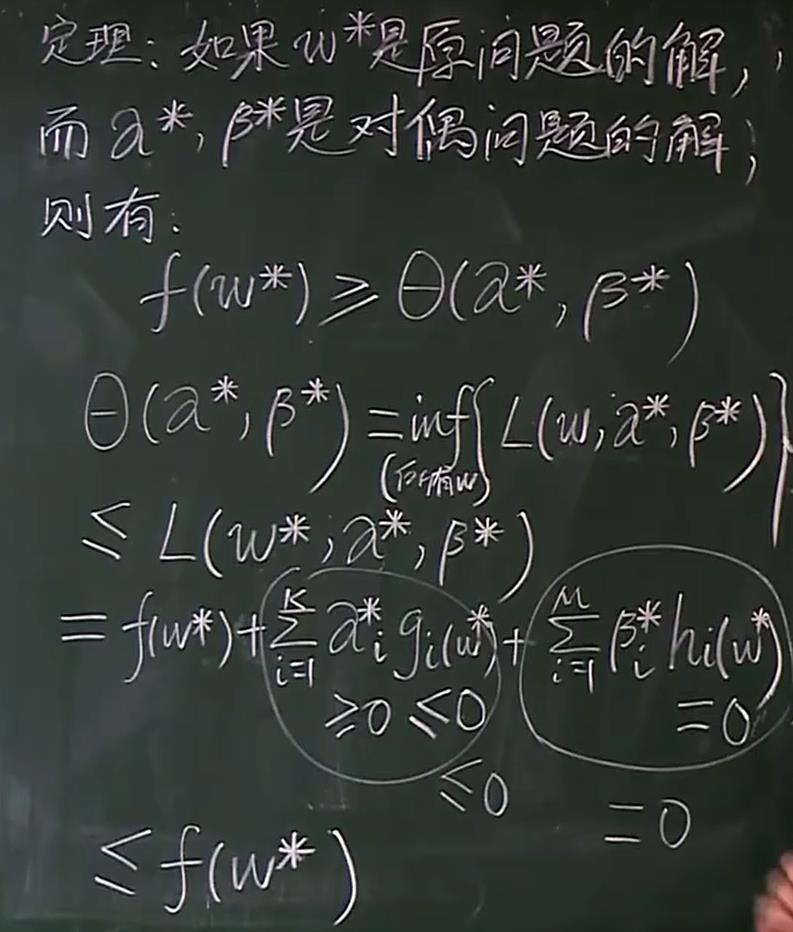 定理：如果w*是原问题的解，
而α*,β*是对偶问题的解，
则有：
f(w*)≥θ(α*,β*)
θ(α*,β*)=inf{L(w,α*,β*)}
(所有w)
≤L(w*,α*,β*)
=f(w*)+∑_{i=1}^{K}α*_i g_i(w*)+∑_{i=1}^{M}β*_i h_i(w*)
≥0 ≤0 =0
≤0 =0
≤f(w*)